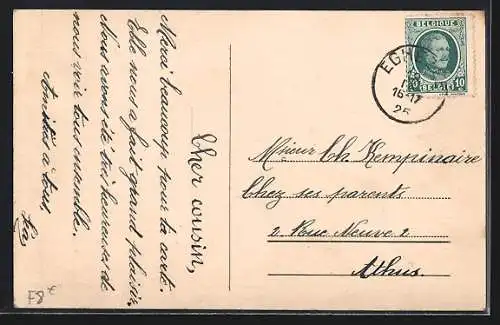 Cher cousin,
Merci beaucoup pour ta carte.
Elle nous a fait grand plaisir.
Nous avons été très heureux de
nous voir tous ensemble.
Amitiés à tous,
BELGIQUE
BELGIE
10
10
16-17
25
Msieur Ch Hempinaire
Chez ses parents
2. Rue Neuve 2
Athus.
F8